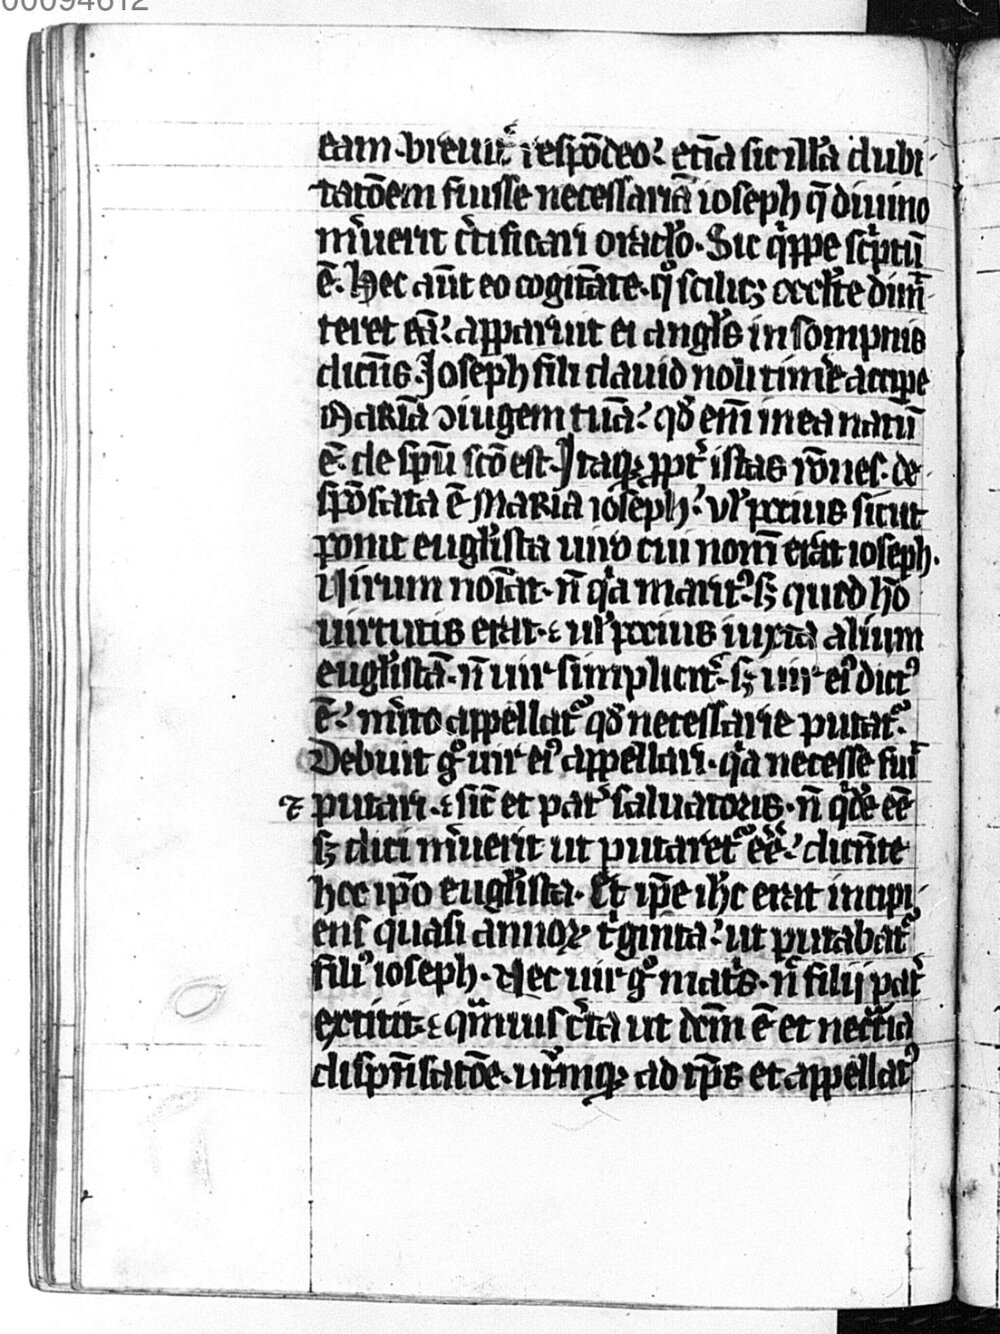 00094612
eam. breuit͛ respōdeo? etiā sic illā dubi
tatōem fuisse necessariā ioseph q̄ diuino
m̄uerit c̄tificari oraclo. Sic q̇ppe sc͛ptū
ē. hec aūt eo cogitāte. qͦ scilicꝫ occlte dim̄
teret eā? apparuit ei angls̄ in sompnis
dicēs. Joseph fili dauid noli tim̄e accipe
MARIā ꝯiugem tuā? qd̄ em̄ in ea natū
ē. de spū scō est. Itaqꝫ ꝓpt͛ istas rōnes. de
spōsata ē MARIA ioseph? ul̛ pocius sicut
ponit euglista uiro cui nom̄ erat ioseph.
Virum noīat. n̄ qͥa maritꝰ. sꝫ quod hō
uirtutis erat. ⁊ ul̛ pocius iuxta alium
euglistā. n̄ uir simplicit͛. sꝫ uir eiꝰ dictꝰ
ē? m̄ito appellat͛ qd̄ necessarie putat͛.
Debuit gͦ uir eiꝰ appellari. qͥa necesse fuit
⁊ putari. ⁊ sic̄ et pat͛ saluatoris. n̄ qͥdē eē
sꝫ dici m̄uerit ut putaret͛ eē? dicēte
hoc ipō euglista. Et ipē ih̄c erat incipi
ens quasi annoꝝ t͛ginta? ut putabat͛
filiꝰ ioseph. Nec uir gͦ mat͛s. n̄ filij pat͛
extitit. ⁊ qͣmuis c̄ta ut dc̄m ē et nec̄cia
dispēsatōe. ut͛mqꝫ ad tp̄s et appellatꝰ